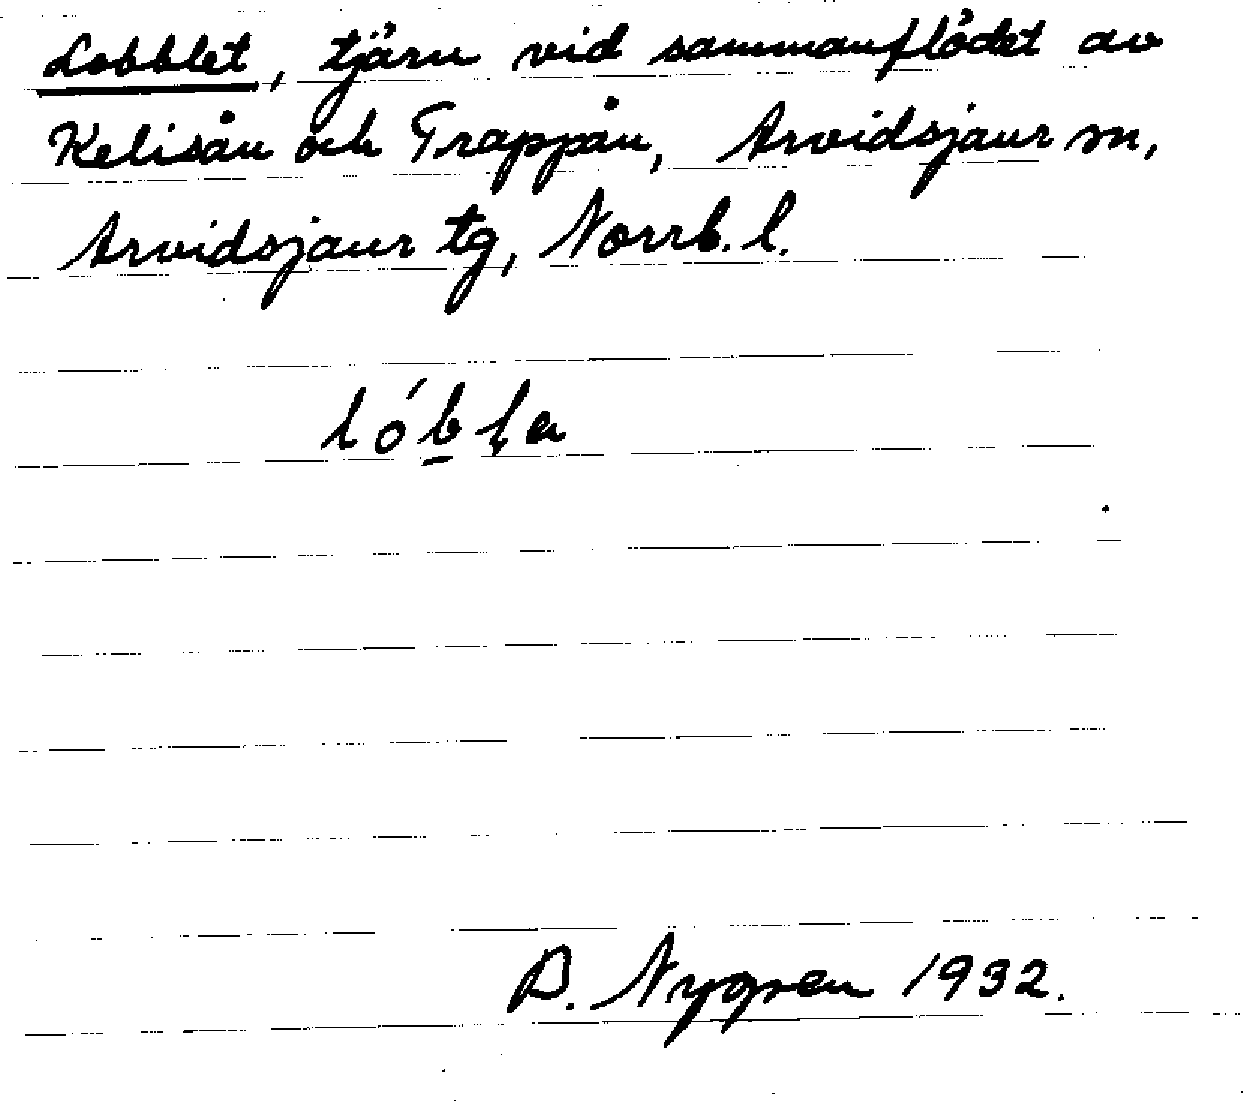 Lobblet, tjärn vid sammanflödet av
Kelisån och Trappån, Arvidsjaur sn,
Arvidsjaur tg, Norrb. l.
lóbla
D. Nygren 1932.